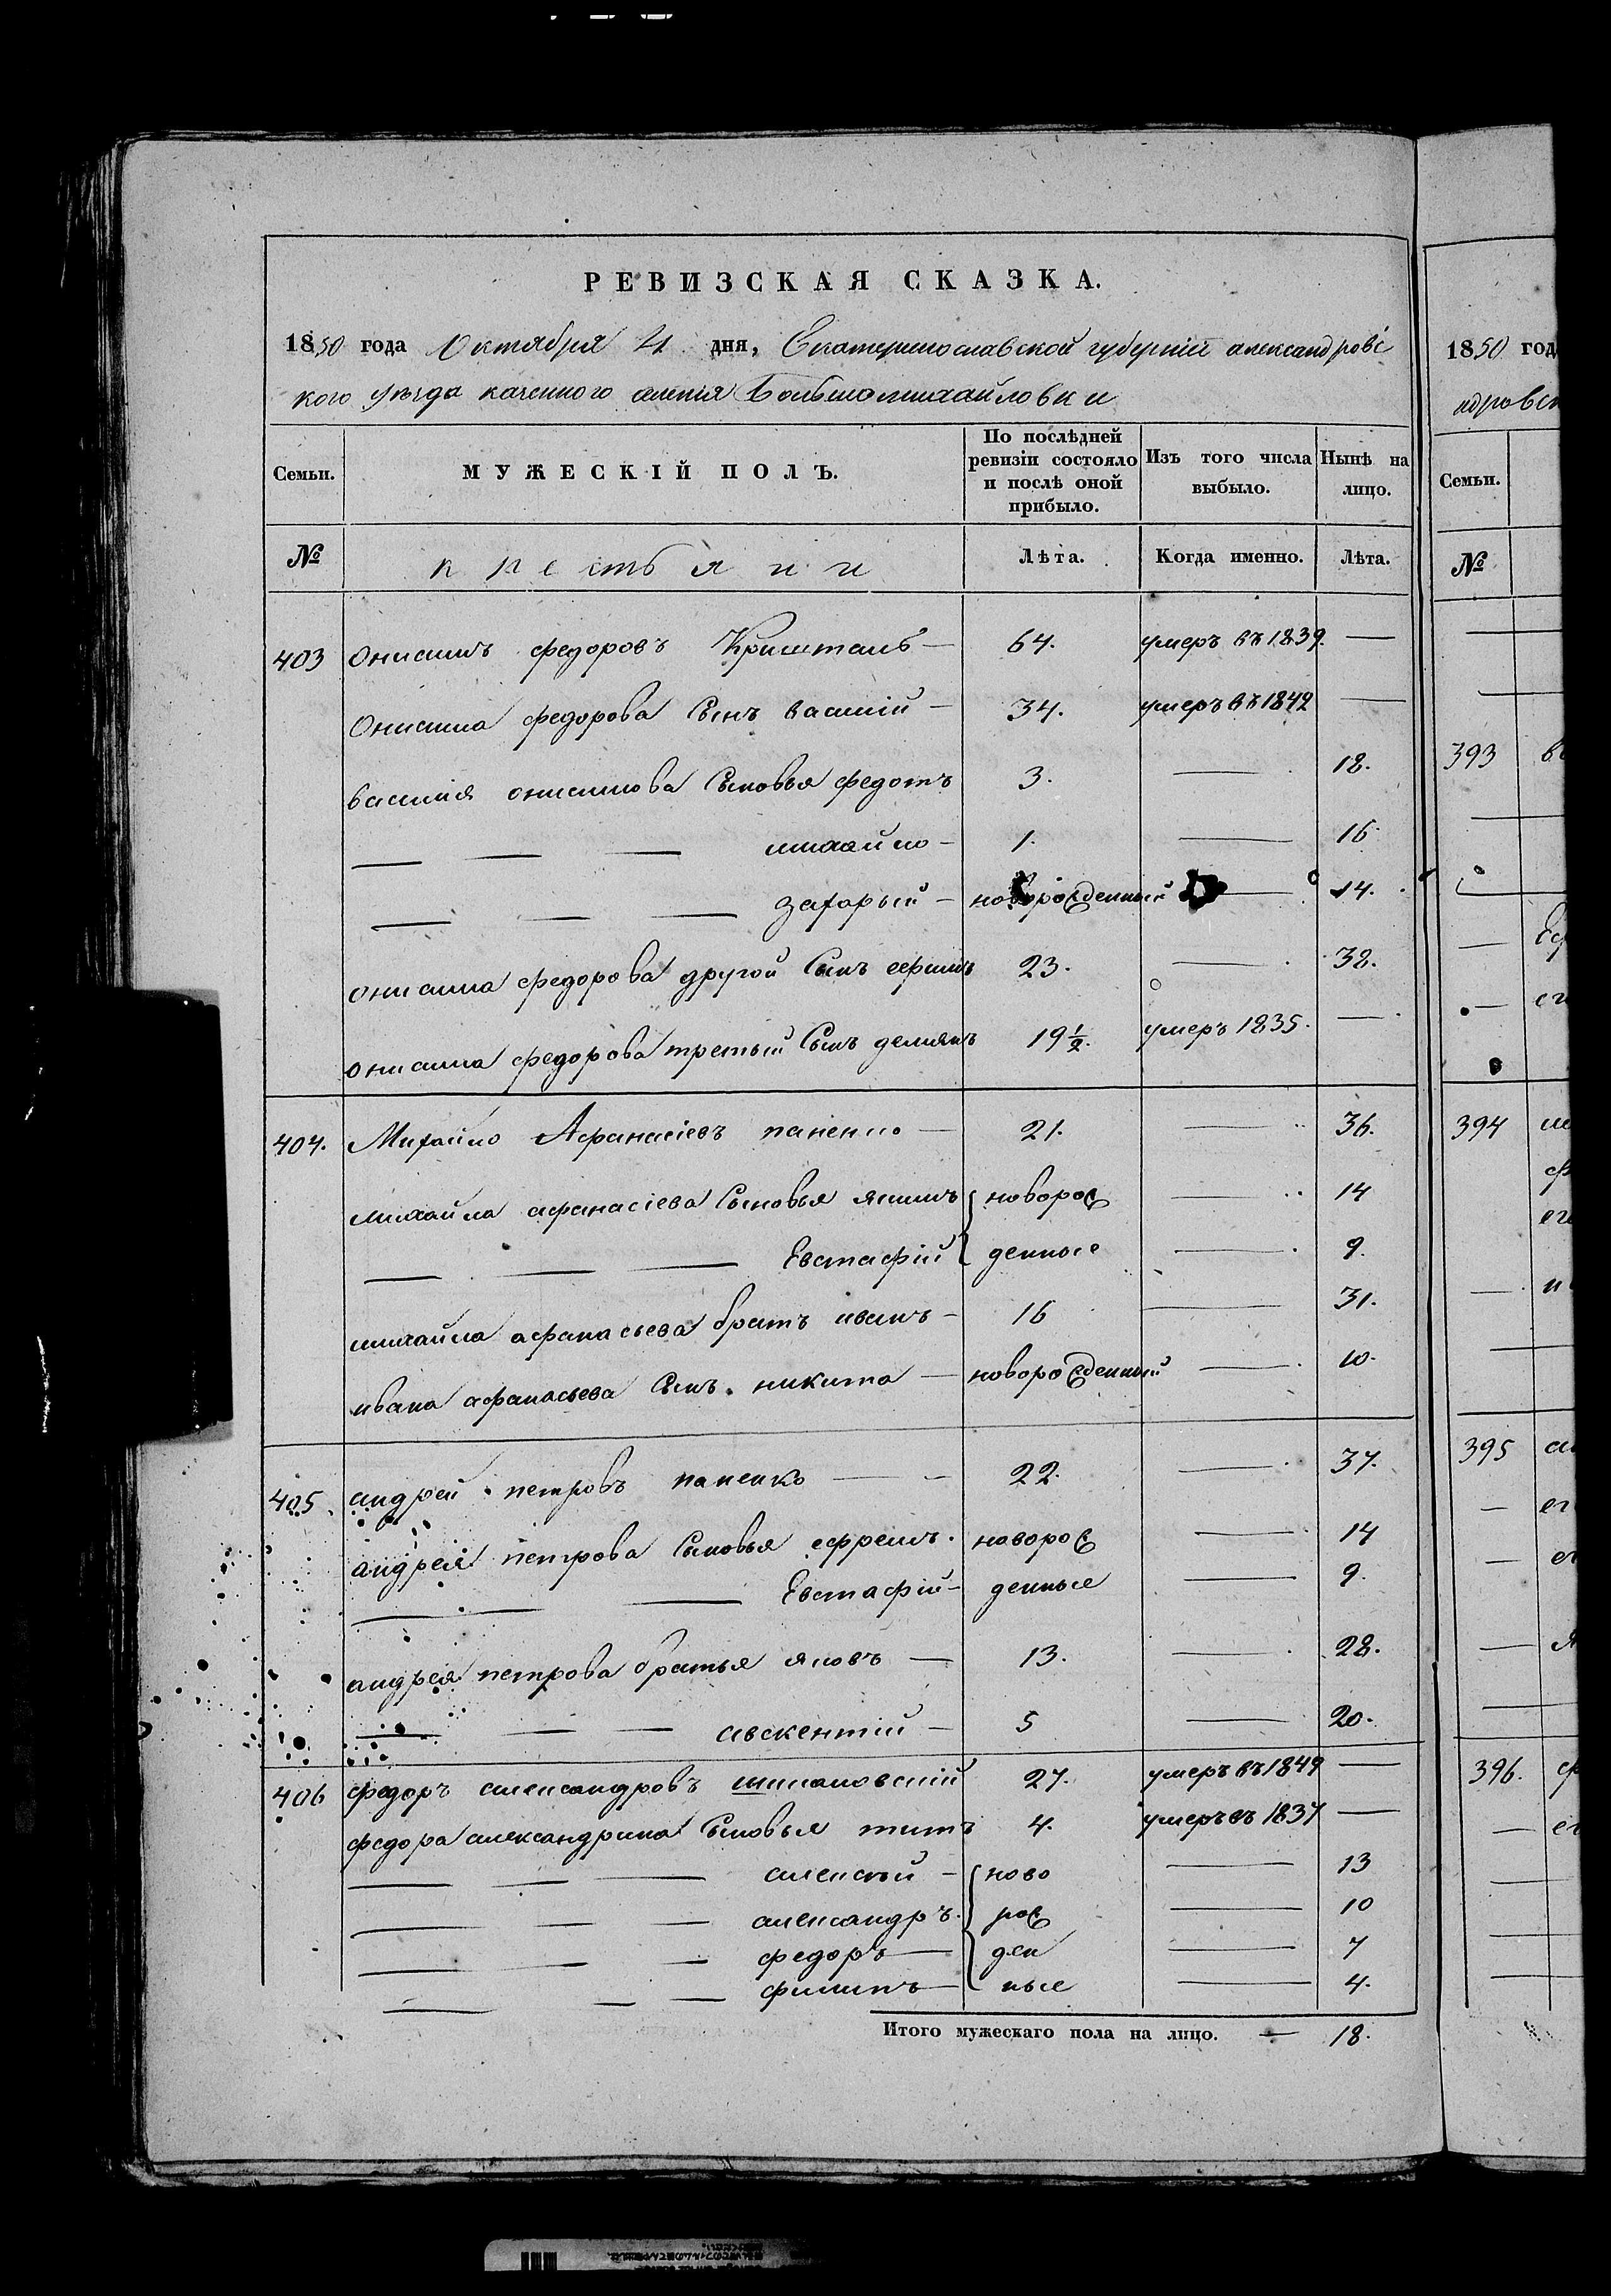 РЕВИЗСКАЯ СКАЗКА.
1850 года Октября 4 дня, Екатеринославской губерніи александровс
кого уезда казенного имения Большомихайловки
Семьи. МУЖЕСКІЙ ПОЛЪ. По послѣдней ревизіи состояло и послѣ оной прибыло. Изъ того числа выбыло. Нынѣ на лицо.
№ крестьяни Лѣта. Когда именно. Лѣта.
403 Онисимъ федоровъ Кришталь — 64. умеръ въ 1839. —
Онисима федорова Сынъ василій — 34. умеръ въ 1842 —
василия онисимова Сыновья федотъ 3. — 18.
— — — михайло — 1. — 16.
— — — захарый — новорожденный — 14.
онисима федорова другой Сынъ ефимъ 23. — 38.
онисима федорова третый Сынъ демянъ 19½. умеръ 1835. —
404. Михайло Афанасіевъ паненко — 21. — 36.
михайла афанасіева Сыновья якимъ новорож — 14
— — — Евстафій денные — 9.
михайла афанасьева братъ иванъ — 16 — 31.
ивана афанасьева Сынъ никита — новорожденный — 10.
405. андрей петровъ паненко — 22. — 37.
андрея петрова Сыновья ефремъ. новорож — 14
— — Евстафій — денные — 9.
андрея петрова братья яковъ — 13. — 28.
— — — авскентій — 5 — 20.
406 федоръ александровъ шимановскій 27. умеръ въ 1849 —
федора александрина Сыновья титъ 4. умеръ въ 1837 —
— — — алексѣй — ново — 13
— — — александръ. рож — 10
— — — федоръ — ден — 7
— — — филипъ — ные — 4.
Итого мужескаго пола на лицо. — 18.
1850 год
ндровск
Семьи.
№
393
394
395
396.